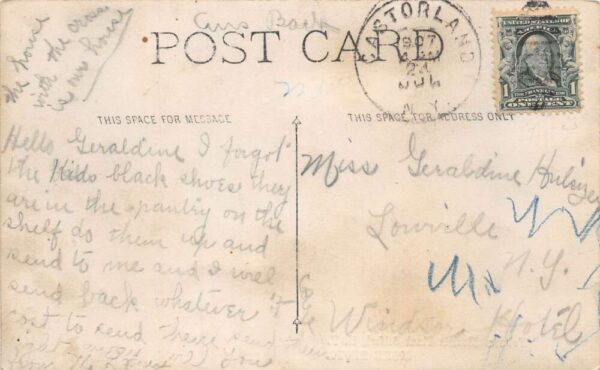 the house
with the cross
is our house
POST CARD
CASTORLAND
1907
JUL
N.Y.
UNITED STATES OF AMERICA
1
POSTAGE
ONE CENT
THIS SPACE FOR MESSAGE
THIS SPACE FOR ADDRESS ONLY
Hello Geraldine I forgot
the Kids black shoes they
are in the pantry on the
shelf do them up and
send to me and I will
send back whatever it
cost to send these send them
right
Miss Geraldine
Lowville
N.Y.
Windsor Hotel